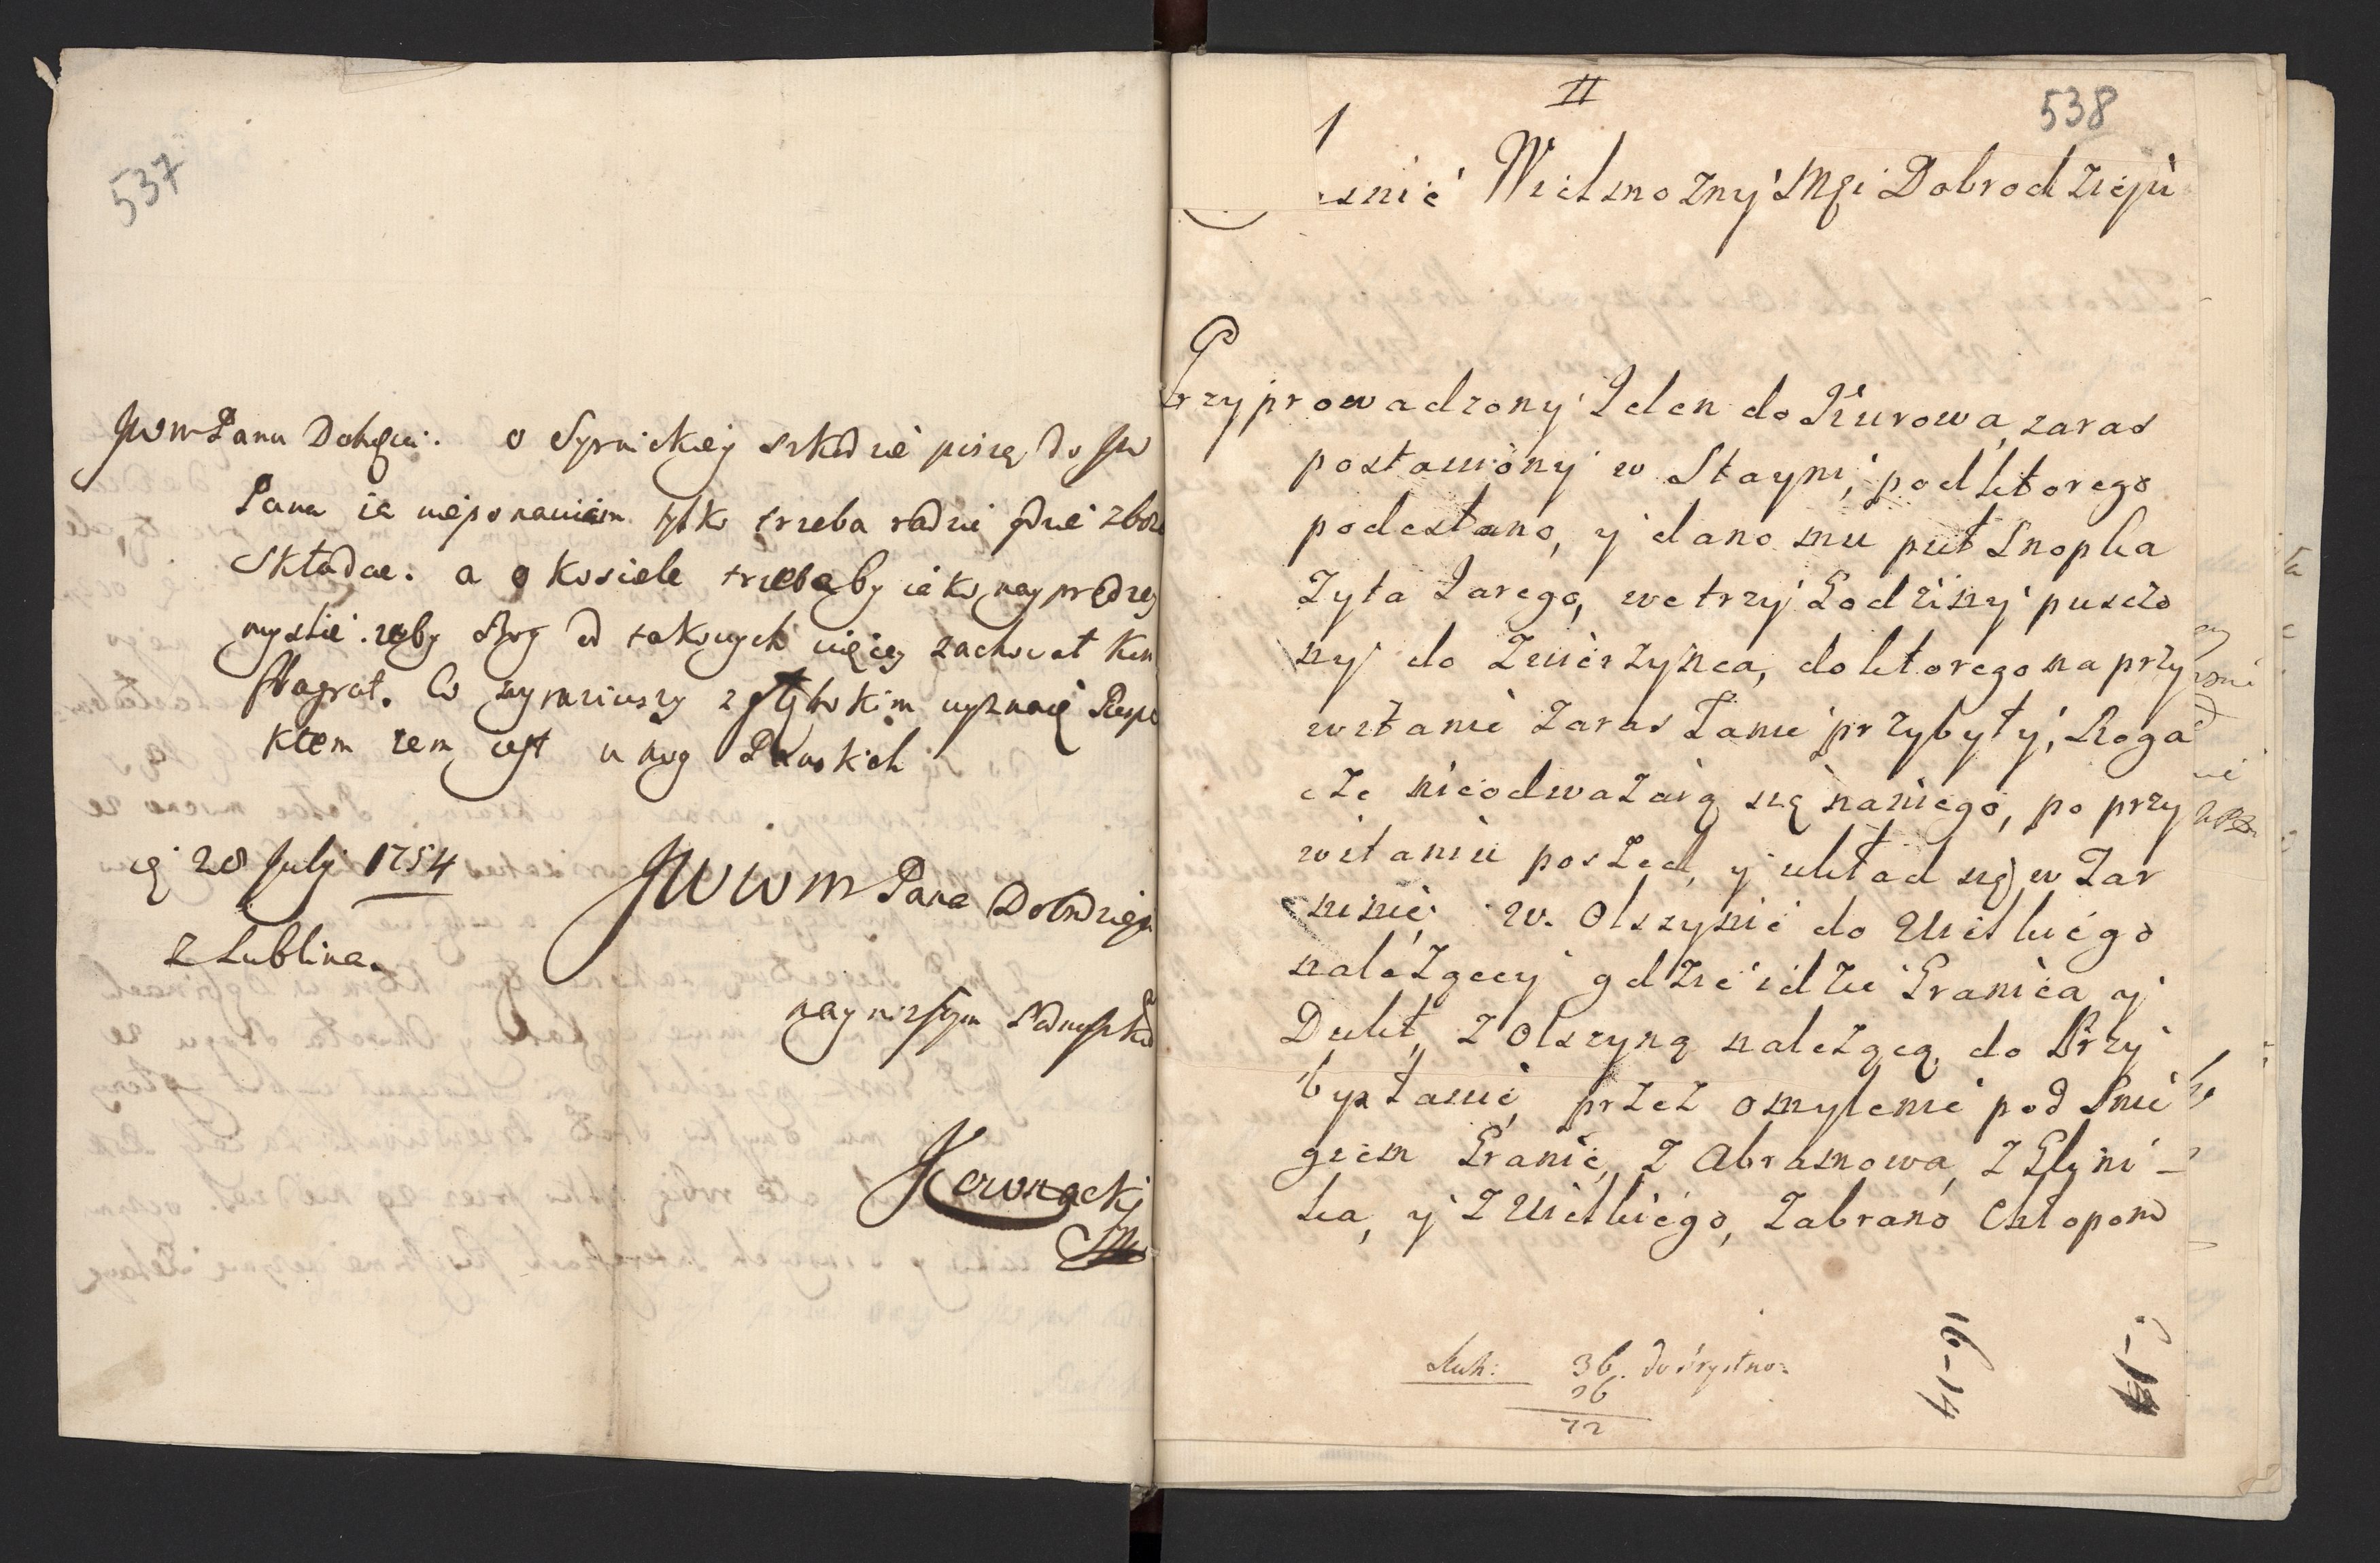 537
JWWm Pana Dobrgiei. o Syrnickiey szkodzie piszą do JW
Pana ia nieponawiam tylko trzeba radzić gdzie zboze
składac. a o kosciele trzebaby iako nayprędzey
myslić. zeby Bog od takowych więcey zachował
Co wyraziwszy z głębokim wyznaię Respe
ktem zem iest u nog Panskich
28 Julij 1754
z Lublina.
JWWm Pana Dobrodzieja
naynizszym
II
538
1
snie Wielmozny Mći Dobrodzieju
Przyprowadzony Jelen do Kurowa, zaras
postawiony w Stayni, pod ktorego
podesłano, y dano mu puł Snopka
Zyta Jarego, we trzy Godziny puszczo
ny do Zwierzynca, do ktorego na przy
witanie zaras Łanie przybyły, Roga
cze nieodwazaią się naniego, po przy
witaniu poszed, y układ się w Jar
ninie w Olszynie do Wielkiego
nalezący gdzie idzie Granica y
Dukt, z Olszyną nalezącą do Przy
bysławic, przez omylenie pod Snie
giem Granic, z Abramowa, z Glyni-
ka, y z Wielkiego, zabrano Chłopom
36.
36
72
16-14